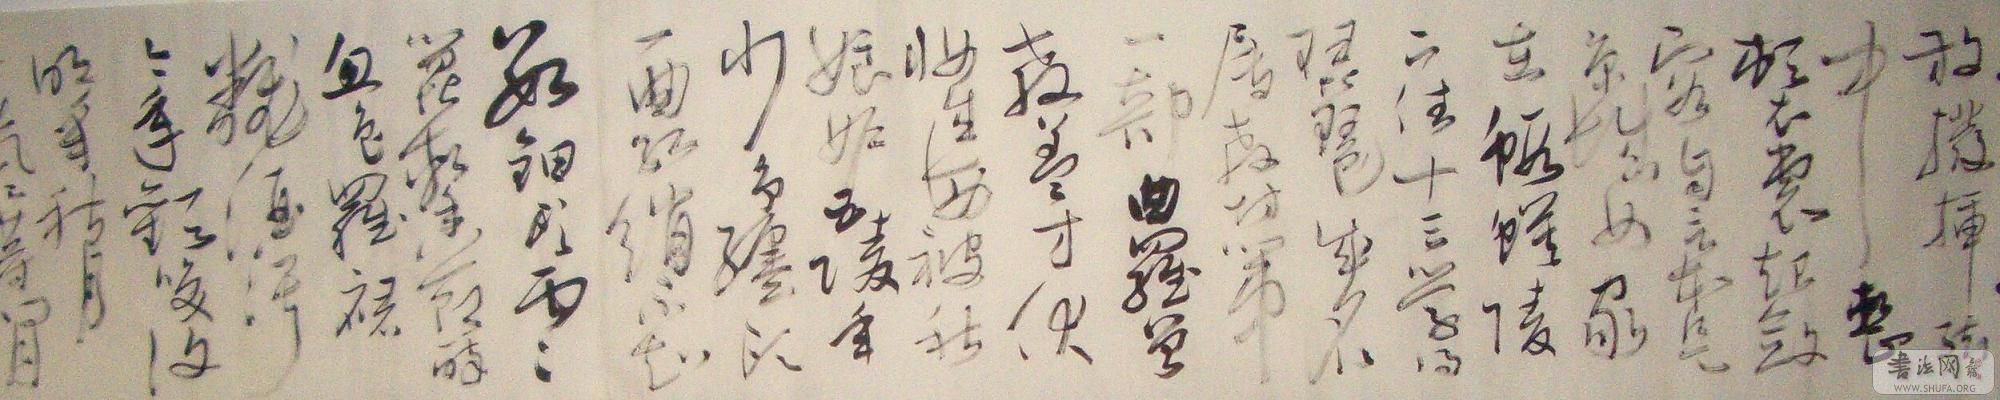 放撥插絃
中整
頓衣裳起斂
容自言本是
京城女家
在蝦蟆陵
下住十三學得
琵琶成名
屬教坊第
一部曲羅曾
教善才伏
妝成每被秋
娘妒五陵年
少爭纏頭
一曲紅綃不知
數鈿頭雲
篦擊節碎
血色羅裙
翻酒污
今年歡笑復
明年秋月
春風等閒
書法网
WWW.SHUFA.ORG